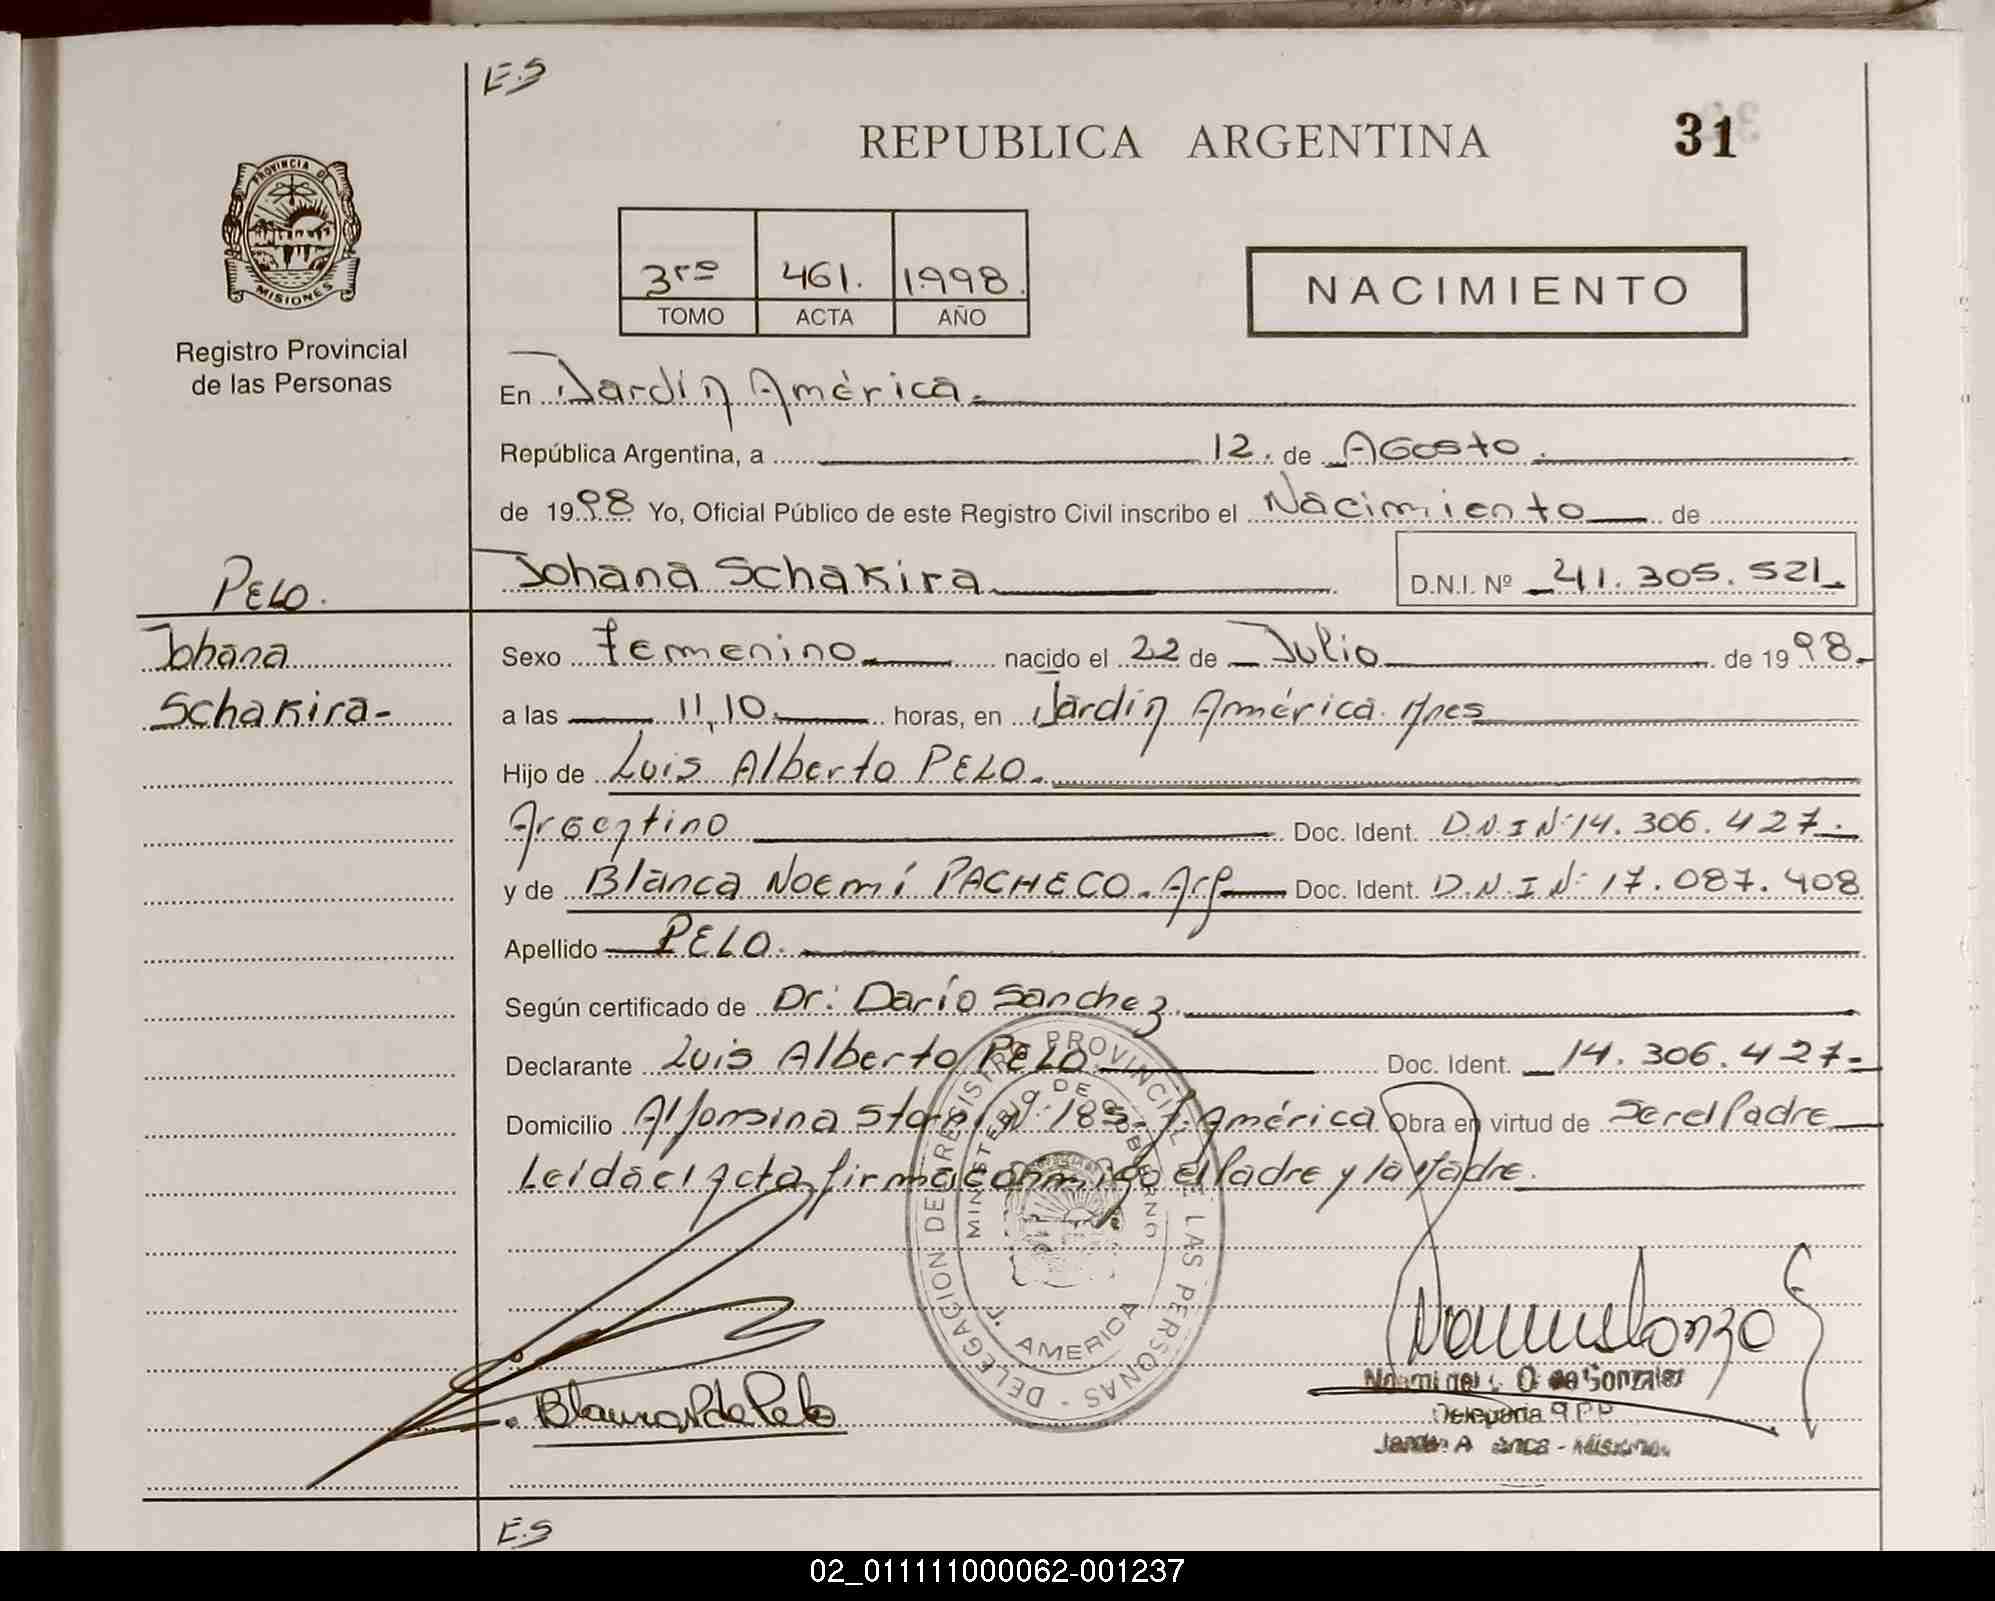 E.S
REPUBLICA ARGENTINA
31
PROVINCIA DE
MISIONES
Registro Provincial
de las Personas
3ro 461. 1998.
TOMO ACTA AÑO
NACIMIENTO
En Jardín América.
República Argentina, a 12. de Agosto.
de 1998 Yo, Oficial Público de este Registro Civil inscribo el Nacimiento de
Johana Schakira D.N.I. Nº 41.305.521
PELO.
Johana
Schakira-
Sexo Femenino nacido el 22 de Julio de 1998.
a las 11,10 horas, en Jardín América. Mnes
Hijo de Luis Alberto PELO.
Argentino Doc. Ident. D.N.I Nº 14.306.427.
y de Blanca Noemí PACHECO. Arg Doc. Ident. D.N.I Nº 17.087.408
Apellido PELO.
Según certificado de Dr: Darío Sanchez.
Declarante Luis Alberto PELO. Doc. Ident. 14.306.427-
Domicilio Alfonsina Storni Nº 185. J. América. Obra en virtud de Ser el Padre
Leída el Acta firma conmigo el Padre y la Madre.
DELEGACION DEL REGISTRO PROVINCIAL DE LAS PERSONAS -
MINISTERIO DE GOBIERNO
J. AMERICA
Blanca P de Pelo
de Gonzalez
Delegada R.P.P
E.S
02_011111000062-001237